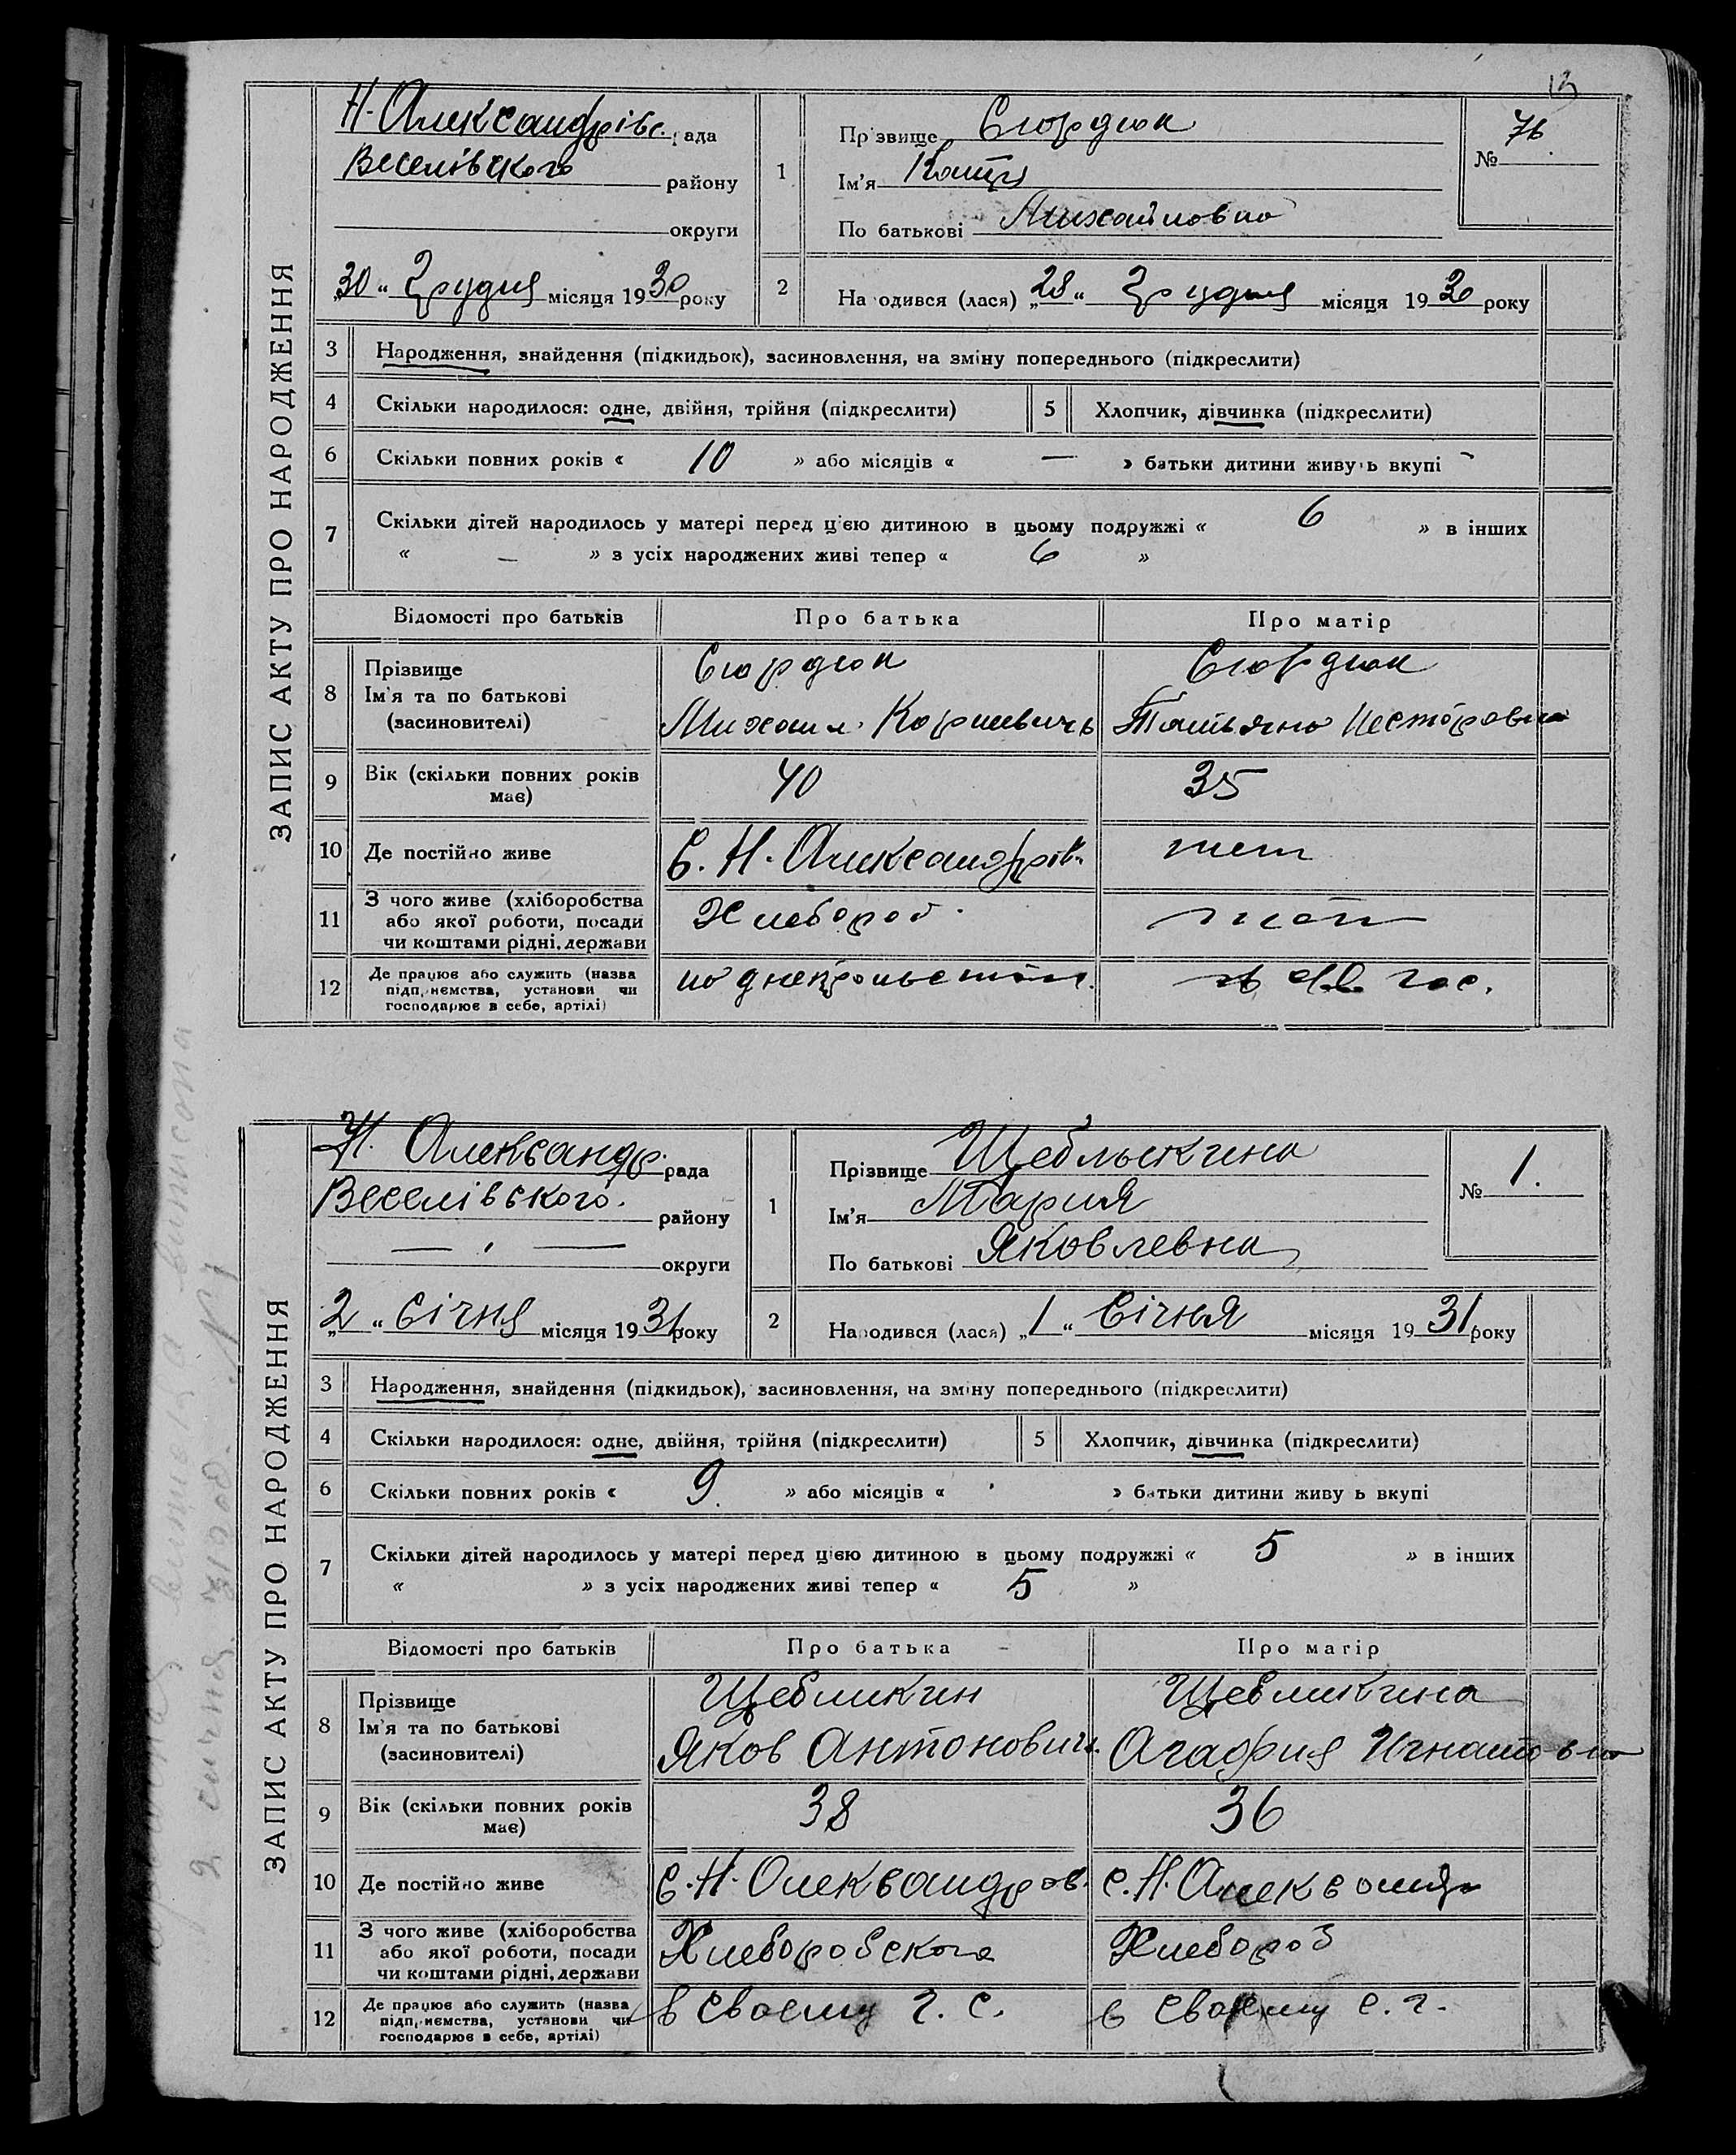 13
ЗАПИС АКТУ ПРО НАРОДЖЕННЯ
Н. Александрівс. рада
Веселівского району
округи
„30“ Грудня місяця 1930 року
1
Прізвище Сюрдюк
Ім'я Катря
По батькові Михайловна
№ 76
2
Народився (лася) „28“ Грудня місяця 1930 року
3 Народження, знайдення (підкидьок), засиновлення, на зміну попереднього (підкреслити)
4 Скільки народилося: одне, двійня, трійня (підкреслити) 5 Хлопчик, дівчинка (підкреслити)
6 Скільки повних років « 10 » або місяців « — » батьки дитини живуть вкупі
7 Скільки дітей народилось у матері перед цією дитиною в цьому подружжі « 6 » в інших
« — » з усіх народжених живі тепер « 6 »
Відомості про батьків Про батька Про матір
8 Прізвище
Ім'я та по батькові
(засиновителі)
Сюрдюк
Михаил
Сюрдюк
Татьяна Несторовна
9 Вік (скільки повних років
має)
40 35
10 Де постійно живе С. Н. Александрів. тет
11 З чого живе (хліборобства
або якої роботи, посади
чи коштами рідні, держави
Хлебороб
12 Де працює або служить (назва
підприємства, установи чи
господарює в себе, артілі)
гос.
ЗАПИС АКТУ ПРО НАРОДЖЕННЯ
Н. Александр. рада
Веселівского. району
— " — округи
„2“ Січня місяця 1931 року
1
Прізвище Щеблыкина
Ім'я Мария
По батькові Яковлевна
№ 1.
2
Народився (лася) „1“ Січня місяця 1931 року
3 Народження, знайдення (підкидьок), засиновлення, на зміну попереднього (підкреслити)
4 Скільки народилося: одне, двійня, трійня (підкреслити) 5 Хлопчик, дівчинка (підкреслити)
6 Скільки повних років « 9 » або місяців « » батьки дитини живуть вкупі
7 Скільки дітей народилось у матері перед цією дитиною в цьому подружжі « 5 » в інших
« » з усіх народжених живі тепер « 5 »
Відомості про батьків Про батька Про матір
8 Прізвище
Ім'я та по батькові
(засиновителі)
Щебликин
Яков Антонович
Щебликина
Агафия Игнатовна
9 Вік (скільки повних років
має)
38 36
10 Де постійно живе С. Н. Олександров. с. Н. Александр
11 З чого живе (хліборобства
або якої роботи, посади
чи коштами рідні, держави
Хлеборобского Хлебороб
12 Де працює або служить (назва
підприємства, установи чи
господарює в себе, артілі)
в своему г. с. в своему с. г.